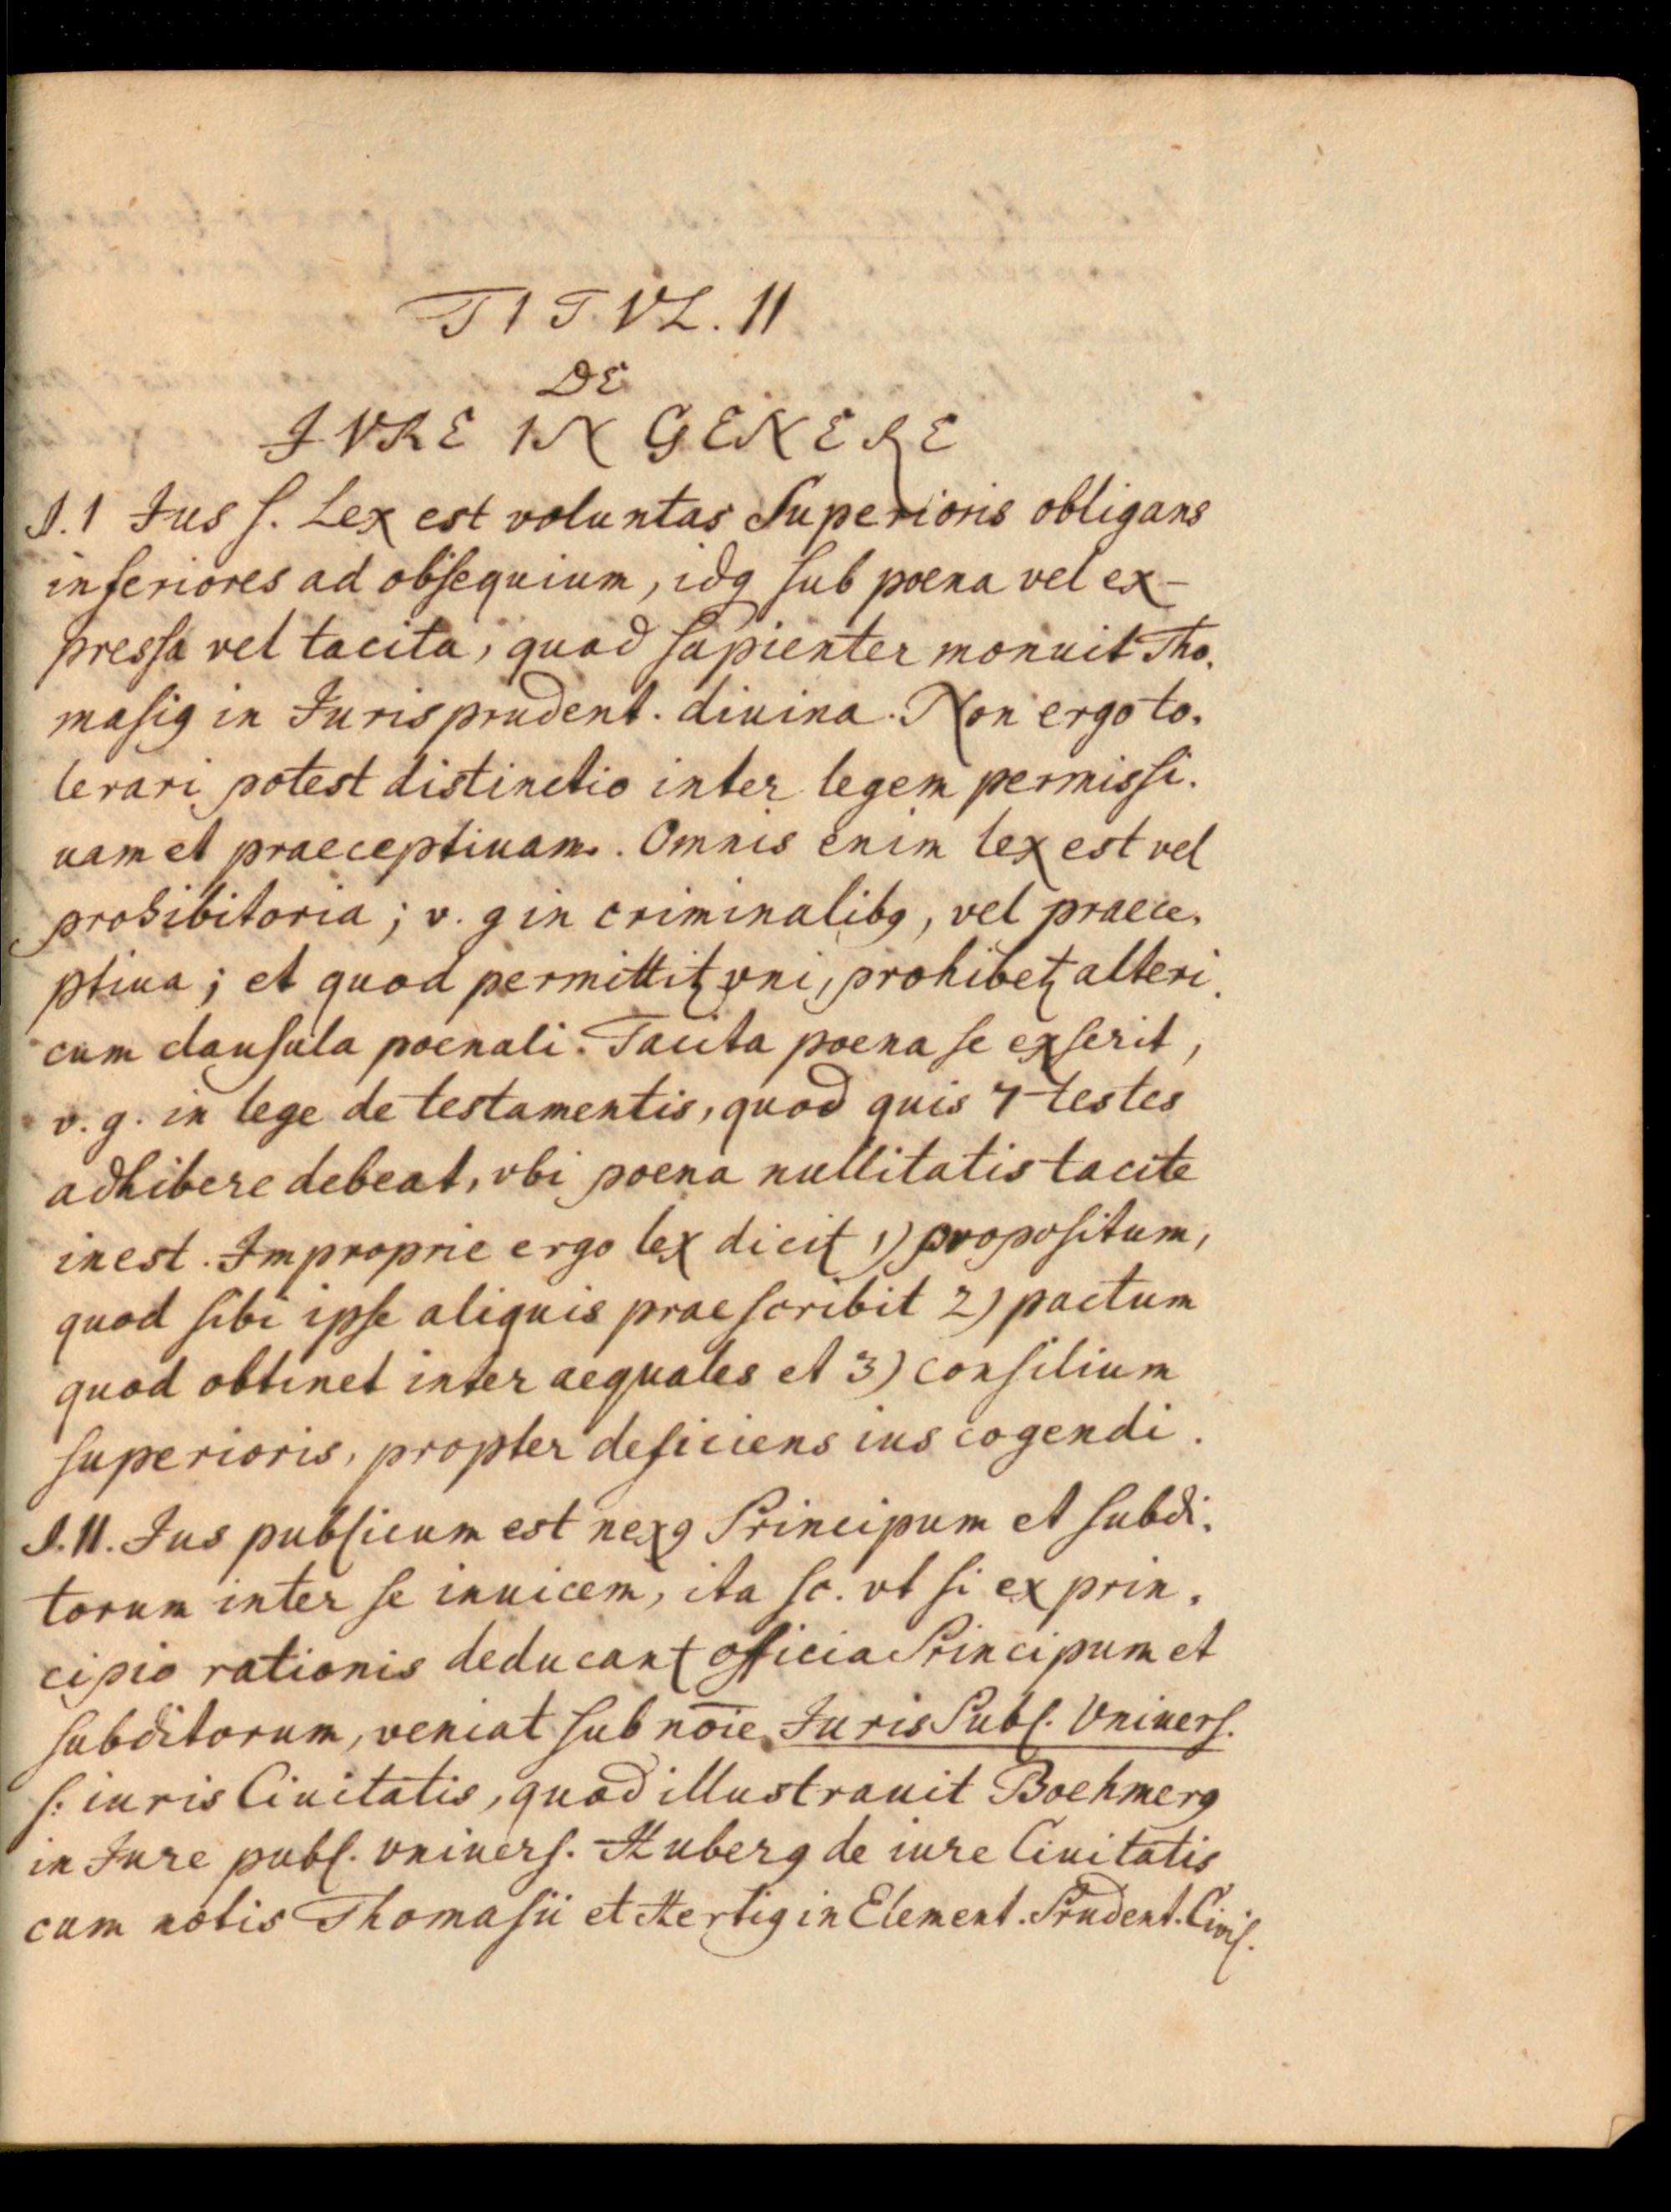 TITVL. II
DE
JVRE IN GENERE
§. 1 Jus s. Lex est voluntas Superioris obligans
inferiores ad obsequium, idq sub poena vel ex-
pressa vel tacita, quod sapienter monuit Tho.
masi9 in Jurisprudent. diuina. Non ergo to.
lerari potest distinctio inter legem permissi.
uam et praeceptiuam. Omnis enim lex est vel
prohibitoria; v. g in criminalib9, vel praece.
ptiua; et quod permittit vni, prohibet alteri
cum clausula poenali. Tacita poena se exserit,
v. g. in lege de testamentis, quod quis 7 testes
adhibere debeat, vbi poena nullitatis tacite
inest. Improprie ergo lex dicit 1) propositum,
quod sibi ipse aliquis praescribit 2) pactum
quod obtinet inter aequales et 3) consilium
superioris, propter deficiens ius cogendi.
§. II. Jus publicum est nex9 Principum et subdi.
torum inter se inuicem, ita sc. vt si ex prin.
cipio rationis deducant officia Principum et
subditorum, veniat sub no̅ie Juris Publ. Vniuers.
s. iuris Ciuitatis, quod illustrauit Boehmer9
in Jure publ. vniuers. Huber9 de iure Ciuitatis
cum notis Thomasii et Herti9 in Element. Prudent. Civil.